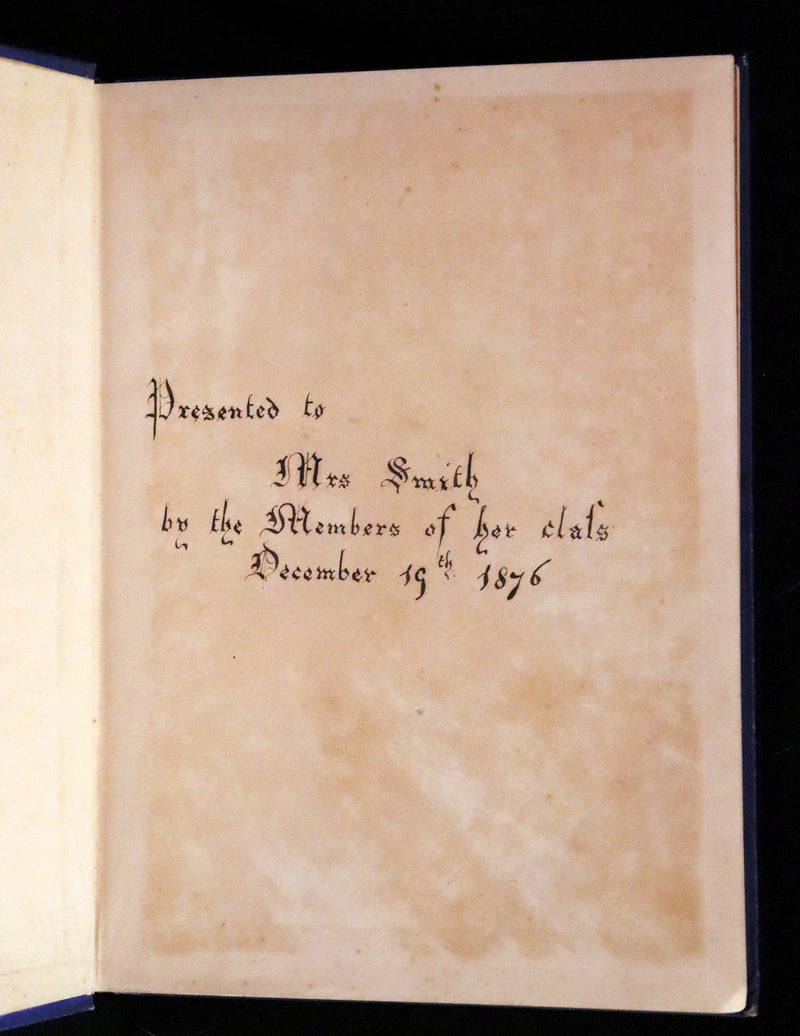 Presented to
Mrs Smith
by the Members of her claſs
December 19th 1876